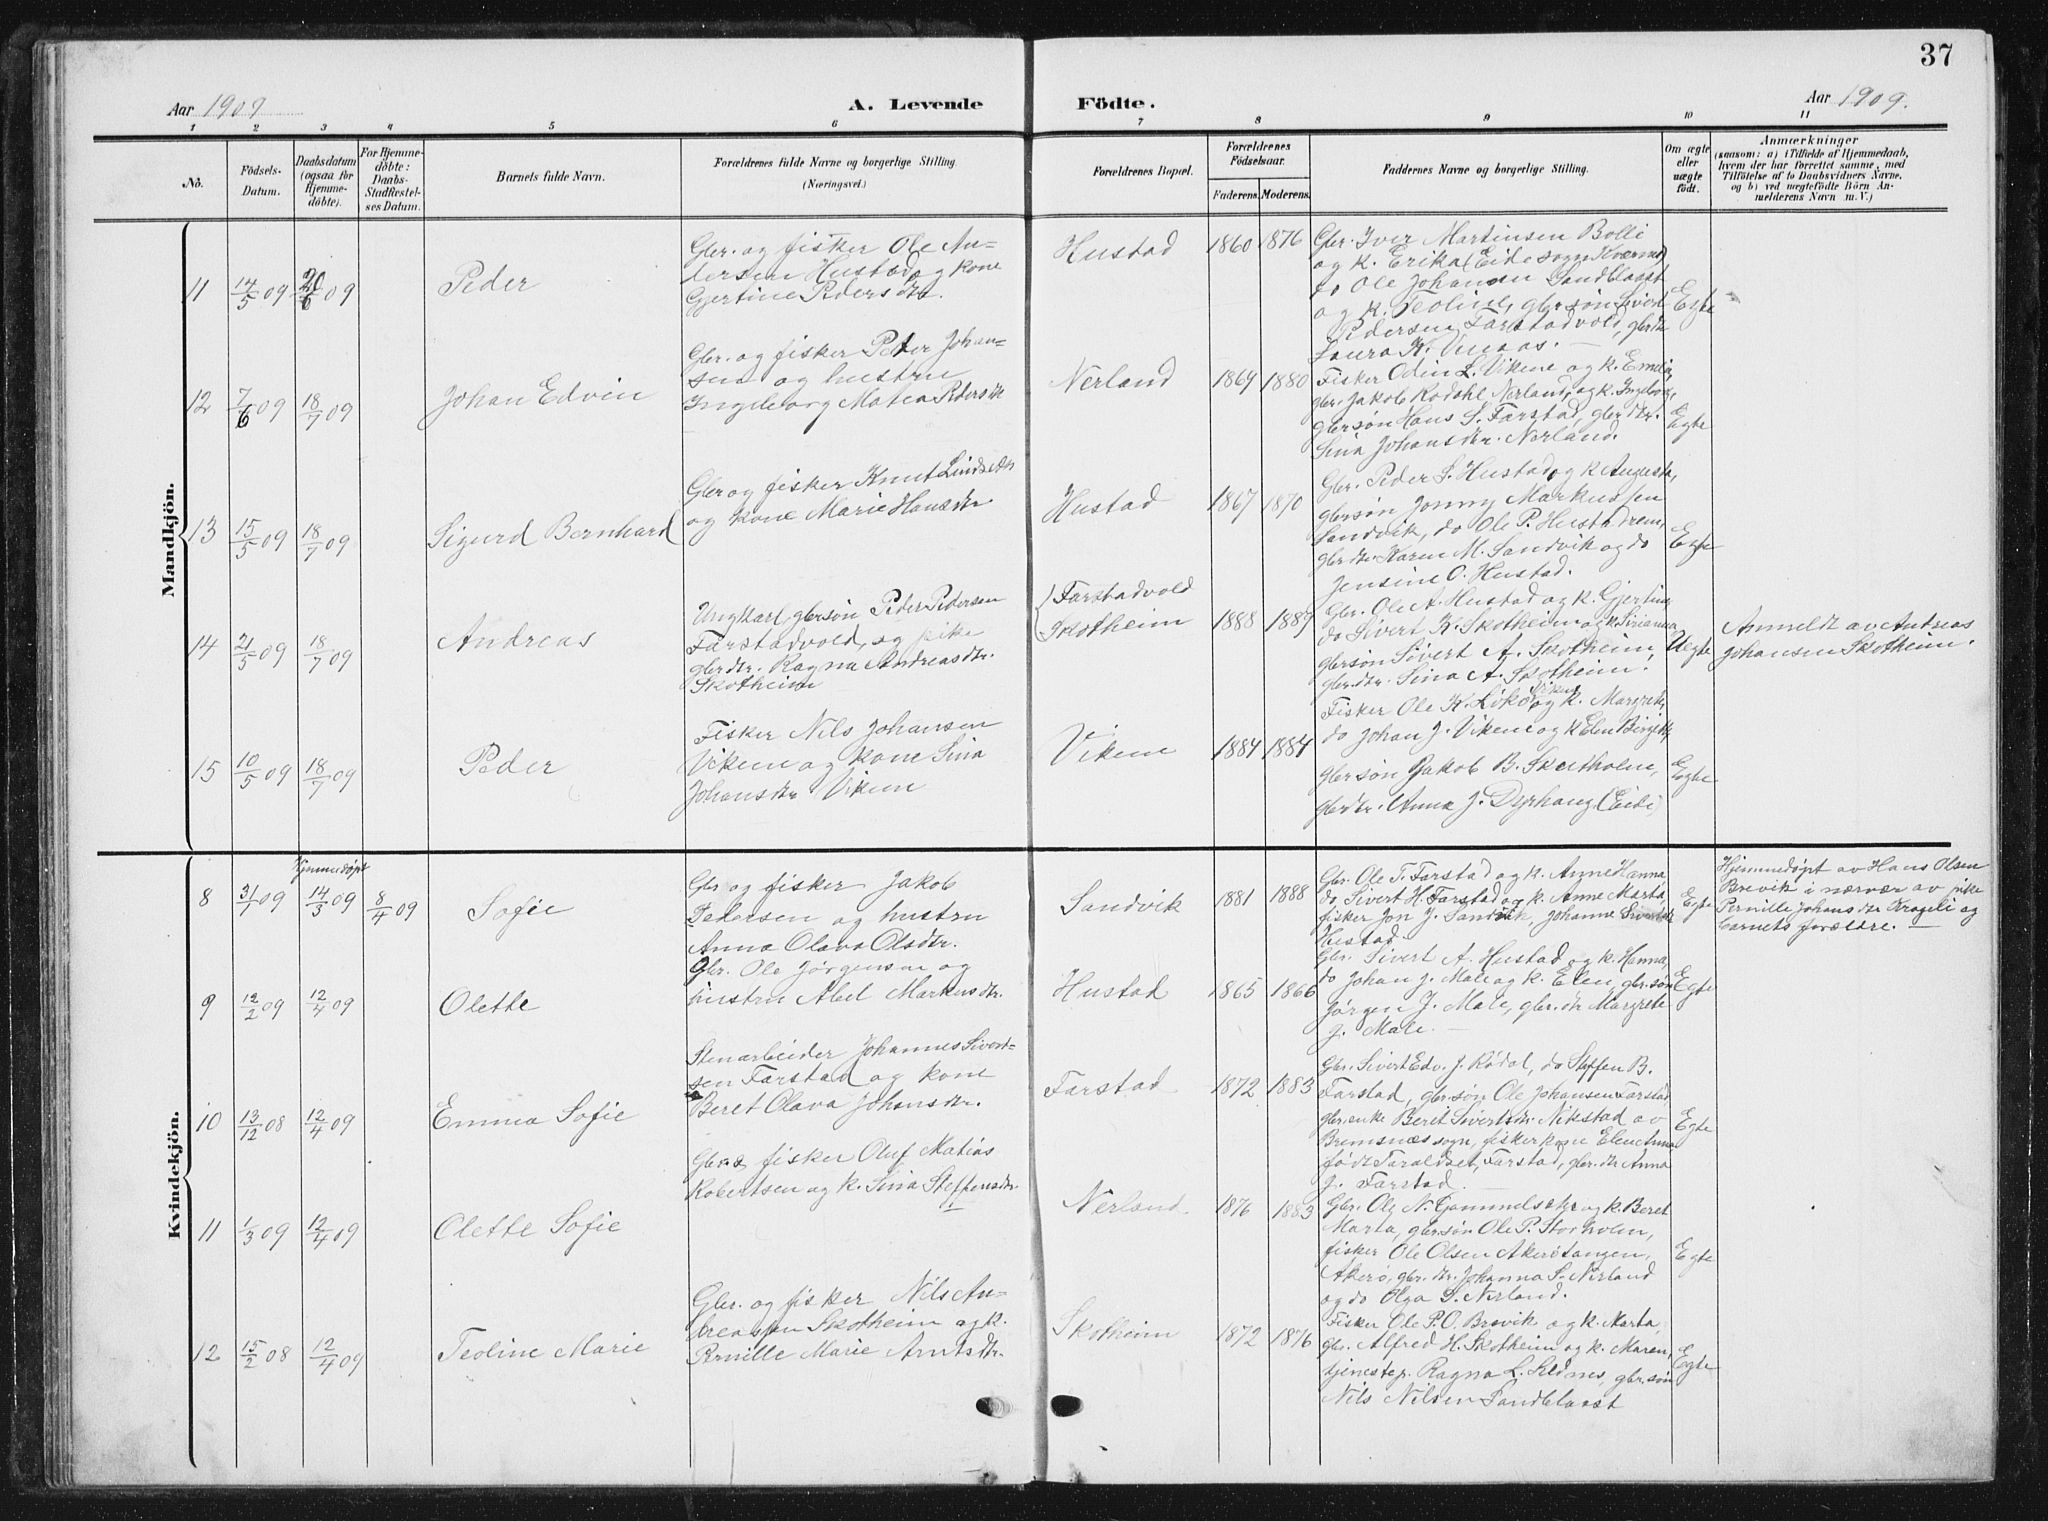 37
Aar 1909
A. Levende
Födte.
Aar 1909.
1 2 3 4 5 6 7 8 9 10 11
No.
Födsels-
Datum.
Daabsdatum
(ogsaa för
Hjemme-
döbte).
For Hjemme-
döbte:
Daabs-
Stadfæstel-
ses Datum.
Barnets fulde Navn.
Forældrenes fulde Navne og borgerlige Stilling.
(Næringsvei.)
Forældrenes Bopæl.
Forældrenes
Födselsaar.
Faderens.
Moderens.
Faddernes Navne og borgerlige Stilling.
Om ægte
eller
uægte
født.
Anmærkninger
(saasom: a) i Tilfælde af Hjemmedaab,
hvem der har forrettet samme, med
Tilföielse af to Daabsvidners Navne,
og b) ved uægtefödte Börn An-
melderens Navn m. V.)
Mandkjön.
11
14/5 09
20/6 09
Peder
Gbr. og fisker Ole An-
dersen Hustad og kone
Gjertine Pedersdtr.
Hustad
1860 1876
Gbr. Iver Martinsen Bolli
og k. Erika (Eide sogn Kværnes)
do Ole Johansen Sandblaast
og k. Teoline, gbrsøn Sivert
Pedersen Farstadvold, gbrdtr
Laura K.
Egte
12
7/6 09
18/7 09
Johan Edvin
Gbr. og fisker Peter Johan-
sen og hustru
Ingeborg Matea Pedersdtr
Nerland
1864 1880
Fisker Odin L. Vikene og k. Emilie,
gbr. Jakob Rodahl Nerland, og k. Ingeborg,
gbrsøn Hans S. Farstad, gbrdtr.
Sina Johansdtr. Nerland.
Egte
13
15/5 09
18/7 09
Sigurd Bernhard
Gbr og fisker Knut Lindseth
og kone Marie Hansdtr
Hustad
1867 1870
Gbr. Peder S. Hustad og k Augusta,
gbrsøn Jonny Markussen
Sandvik, do Ole P. Hustadrem,
gbrdtr. Karen M. Sandvik og do
Jensine O. Hustad.
Egte
14
21/5 09
18/7 09
Andreas
Ungkarl, gbrsøn Peder Pedersen
Farstadvold, og pike
gbrdtr. Ragna Andreasdtr.
Skotheim
{Farstadvold
Skotheim
1888 1889
Gbr. Ole A. Hustad og k. Gjertine,
do Sivert K. Skotheim og k. Sirianna
gbrsøn Sivert A. Skotheim,
gbr.dtr. Sina A. Skotheim.
Uegte
Anmeldt av Andreas
Johansen Skotheim.
15
10/5 09
18/7 09
Peder
Fisker Nils Johansen
Vikene og kone Sina
Johansdtr Viken
Vikene
1884 1884
Fisker Ole K. Vikene og k. Margrete,
do Johan J. Vikene og k Elen Birgitte,
gbrsøn Jakob B. Skutholm,
gbrdtr. Anna J. Dyrhaug (Eide)
Egte
Kvindekjön.
8
31/1 09
Hjemmedøpt
14/3 09
8/4 09
Sofie
Gbr og fisker Jakob
Pedersen og hustru
Anna Olava Olsdtr.
Sandvik
1881 1888
Gbr. Ole T. Farstad og k. Anne Hanna
do Sivert H. Farstad og k. Anne Marta,
fisker Jon J. Sandvik, Johanne Sivertsdtr
Hustad
Egte
Hjemmedøpt av Hans Olsen
Brevik i nærvær av pike
Pernille Johansdtr Krogeli og
barnets forældre.
9
12/2 09
12/4 09
Olette
Gbr. Ole Jørgensen og
hustru Abel Markusdtr.
Hustad
1865 1866
Gbr. Sivert A. Hustad og k. Hanna,
do Johan J. Male og k. Elen, gbr.søn
Jørgen J. Male, gbr.dtr Margrete
J. Male.
Egte
10
13/12 08
12/4 09
Emma Sofie
Stenarbeider Johannes Sivert-
sen Farstad og kone
Beret Olava Johansdtr.
Farstad
1872 1883
Gbr. Sivert Edv. J. Rødal, do Steffen B.
Farstad, gbr.søn Ole Johansen Farstad
gbr.enke Beret Sivertsdtr. Nikstad av
Bremsnæs sogn, fisker kone Elen Anna
født Taraldset, Farstad, gbr.dtr Anna
J. Farstad.
Egte
11
1/3 09
12/4 09
Olette Sofie
Gbr. & fisker Oluf Matias
Robertsen og k. Sina Steffensdtr.
Nerland
1876 1883
Gbr. Ole N. Gammelsæter og k. Beret
Marta, gbr.søn Ole P. Storholm,
fisker Ole Olsen Akerøtangen,
Akerø, gbr.dtr. Johanna S. Nerland
og do Olga S. Nerland.
Egte
12
15/2 08
12/4 09
Teoline Marie
Gbr. og fisker Nils An-
dreassen Skotheim og k.
Pernille Marie Arntsdtr.
Skotheim
1872 1876
Fisker Ole P.O. Brevik og k. Marta,
gbr. Alfred H. Skotheim og k. Maren,
tjenestep. Ragna L. Seldnes, gbr.søn
Nils Nilsen Sandblaast
Egte